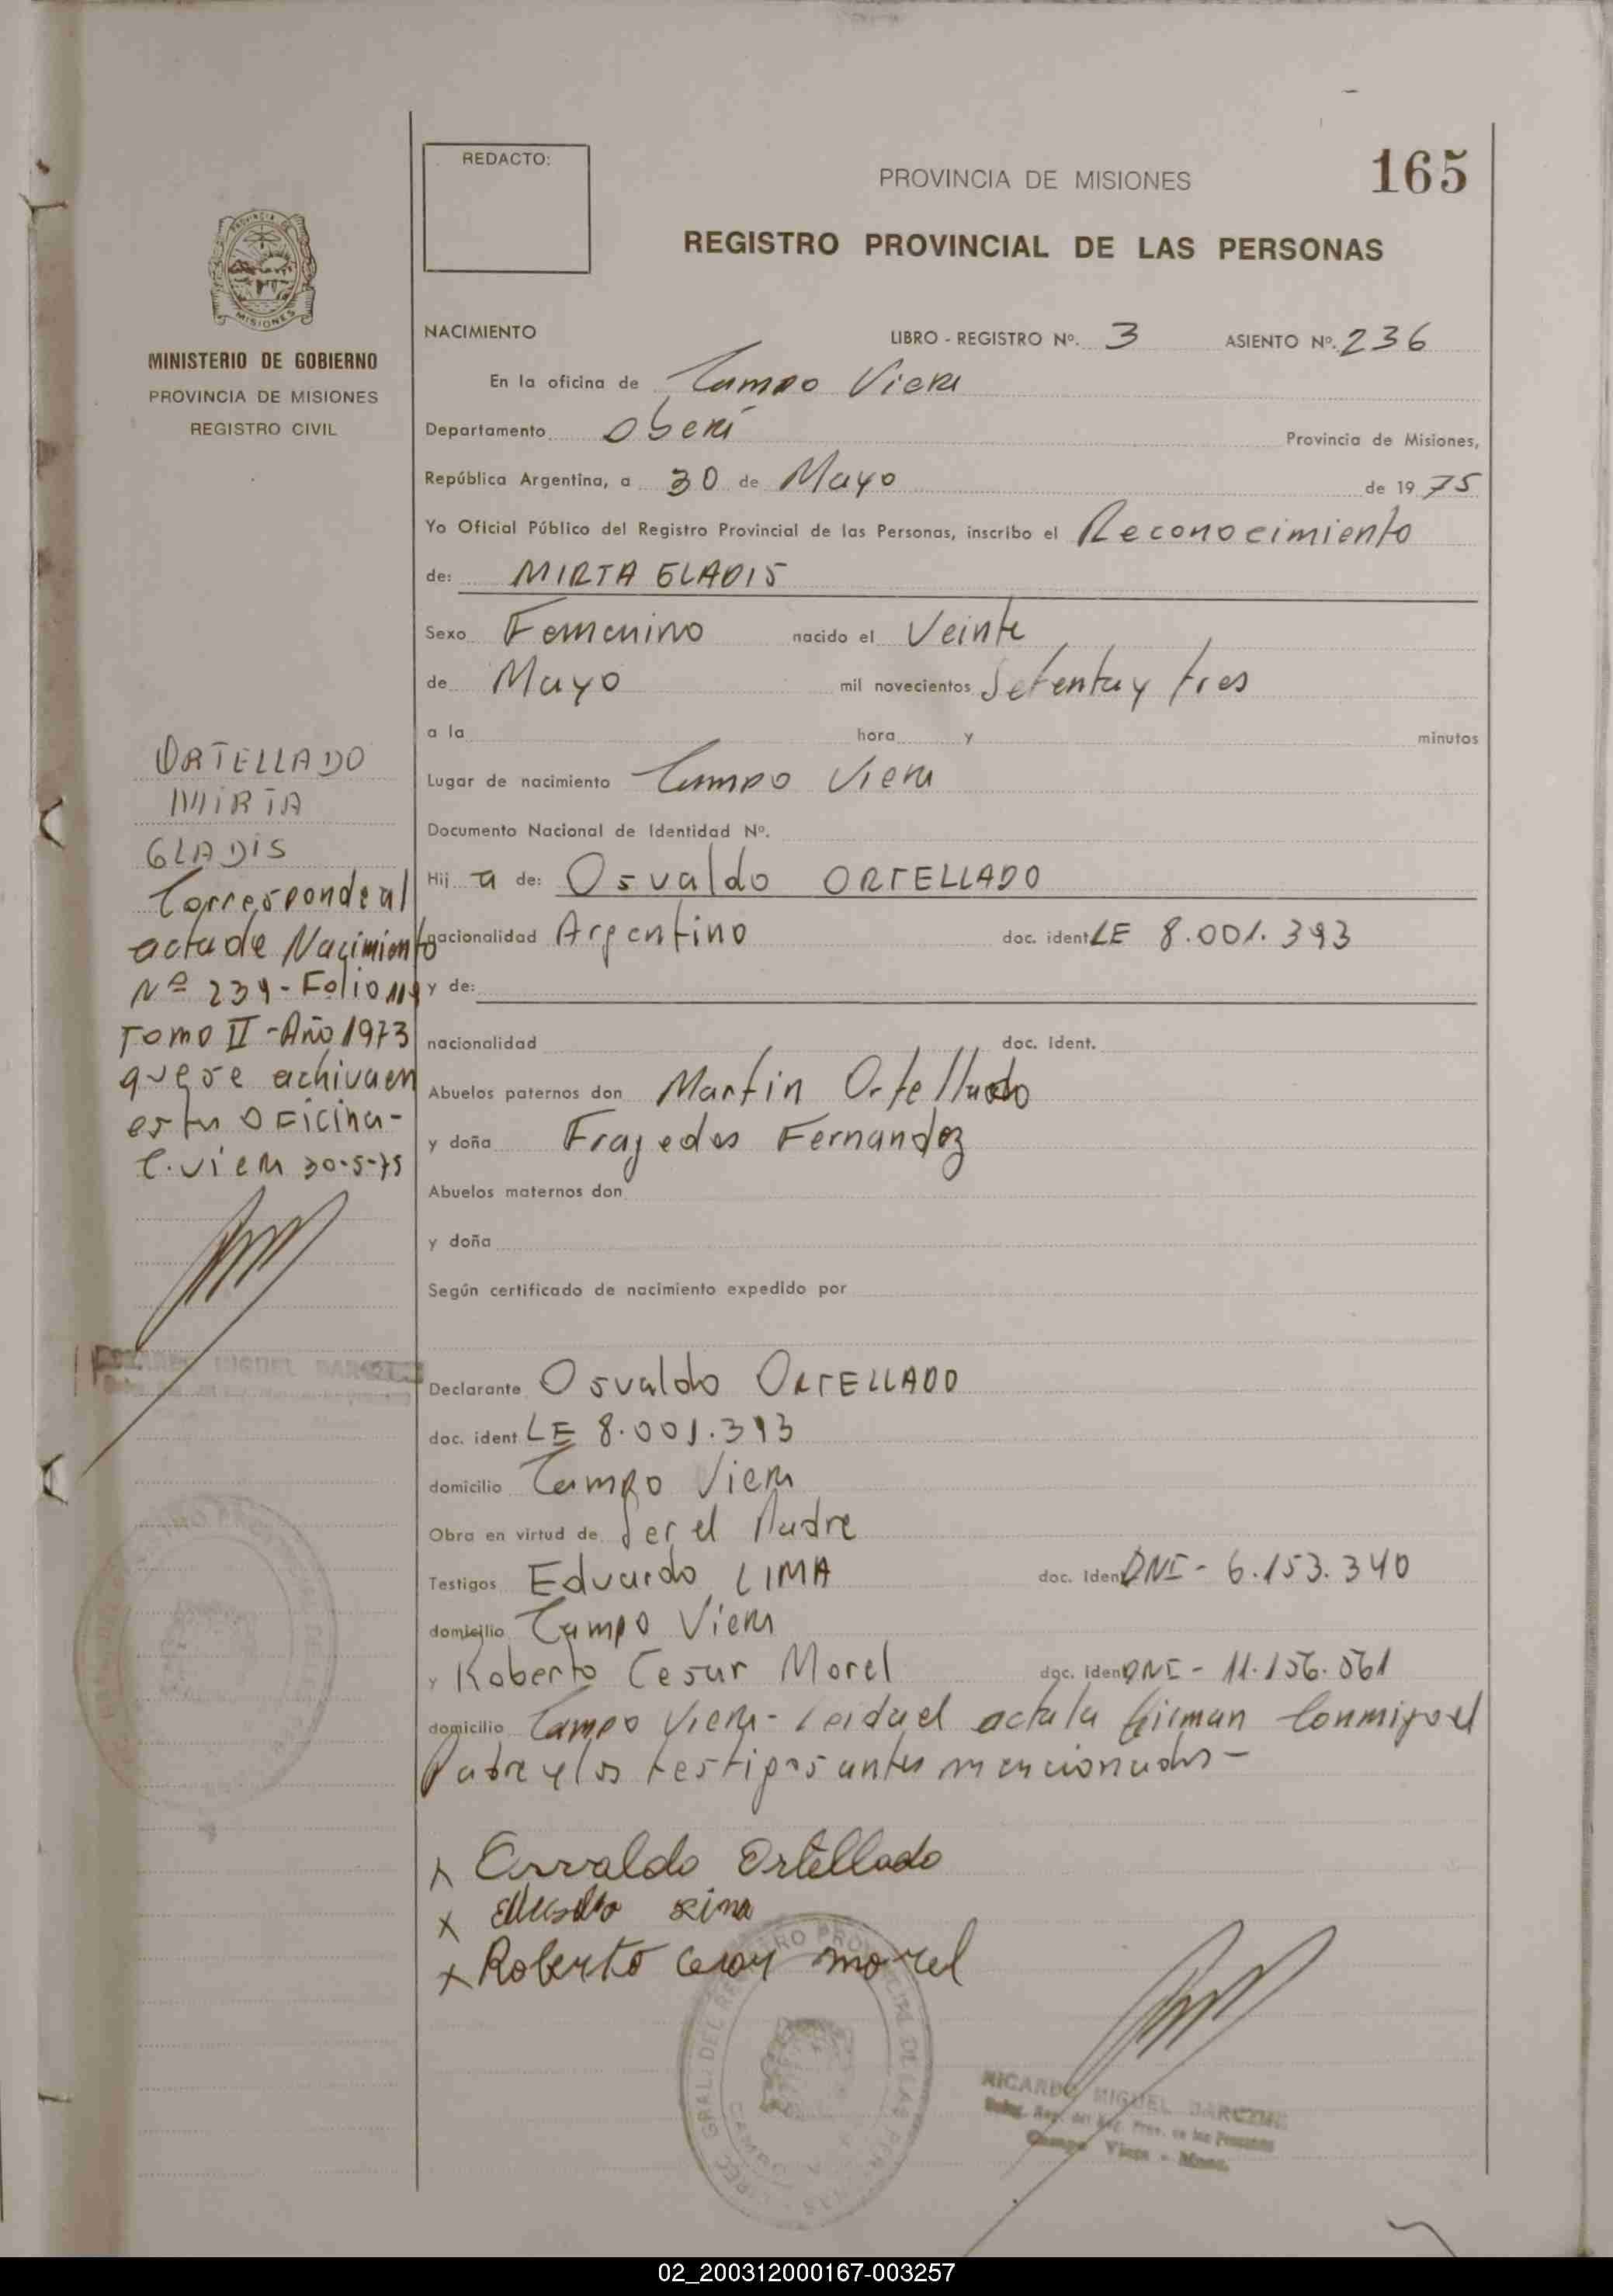 REDACTO:
PROVINCIA DE MISIONES
165
REGISTRO PROVINCIAL DE LAS PERSONAS
PROVINCIA DE
MISIONES
MINISTERIO DE GOBIERNO
PROVINCIA DE MISIONES
REGISTRO CIVIL
NACIMIENTO LIBRO - REGISTRO Nº. 3 ASIENTO Nº. 236
En la oficina de Campo Viera
Departamento Oberá Provincia de Misiones,
República Argentina, a 30 de Mayo de 1975
Yo Oficial Público del Registro Provincial de las Personas, inscribo el Reconocimiento
de: MIRTA GLADIS
Sexo Femenino nacido el Veinte
de Mayo mil novecientos Setenta y tres
a la hora y minutos
Lugar de nacimiento Campo Viera
Documento Nacional de Identidad Nº.
Hij a de: Osvaldo ORTELLADO
nacionalidad Argentino doc. ident LE 8.001.393
y de:
nacionalidad doc. Ident.
Abuelos paternos don Martin Ortellado
y doña Fragedes Fernandez
Abuelos maternos don
y doña
Según certificado de nacimiento expedido por
Declarante Osvaldo ORTELLADO
doc. ident LE 8.001.393
domicilio Campo Viera
Obra en virtud de Ser el Padre
Testigos Eduardo LIMA doc. Iden DNI - 6.153.340
domicilio Campo Viera
y Roberto Cesar Morel doc. Iden DNI - 11.156.561
domicilio Campo Viera - Leida el acta la firman Conmigo el
Padre y los testigos antes mencionados -
x Osvaldo Ortellado
x Lima
x Roberto Cesar Morel
RICARDO MIGUEL
Campo Viera - Mnes.
ORTELLADO
MIRTA
GLADIS
Corresponde al
acta de Nacimiento
Nº 239 - Folio 119
Tomo II - Año 1973
que se achiva en
esta Oficina -
C. Viera 30-5-75
MIGUEL
02_200312000167-003257